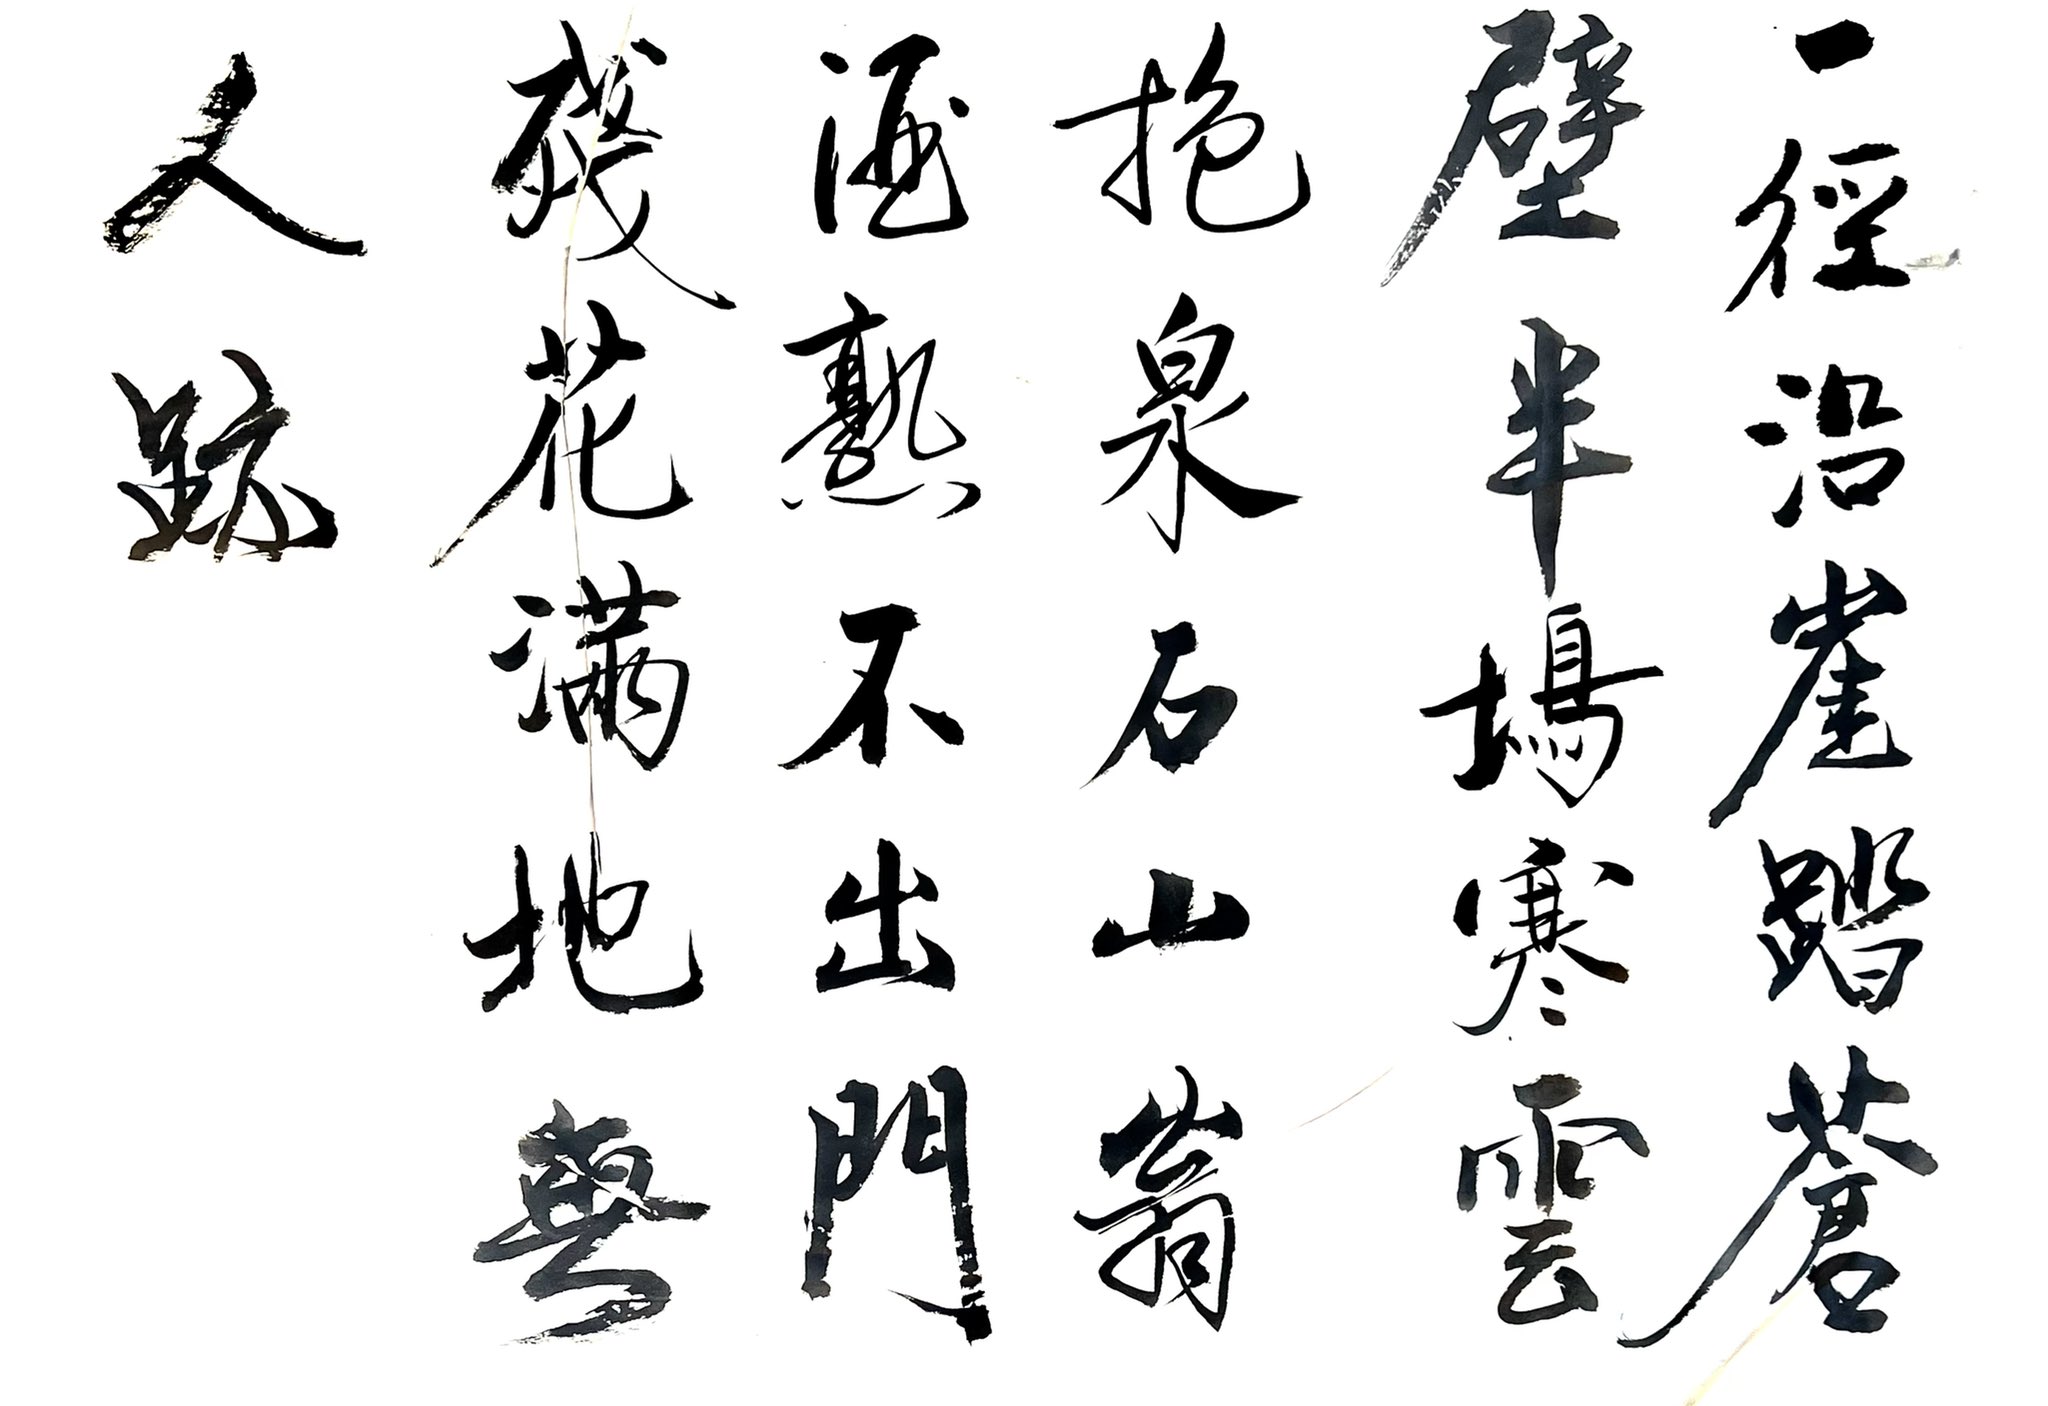 一徑沿崖踏蒼
壁半塢寒雲
抱泉石山翁
酒熟不出門
殘花滿地無
人跡